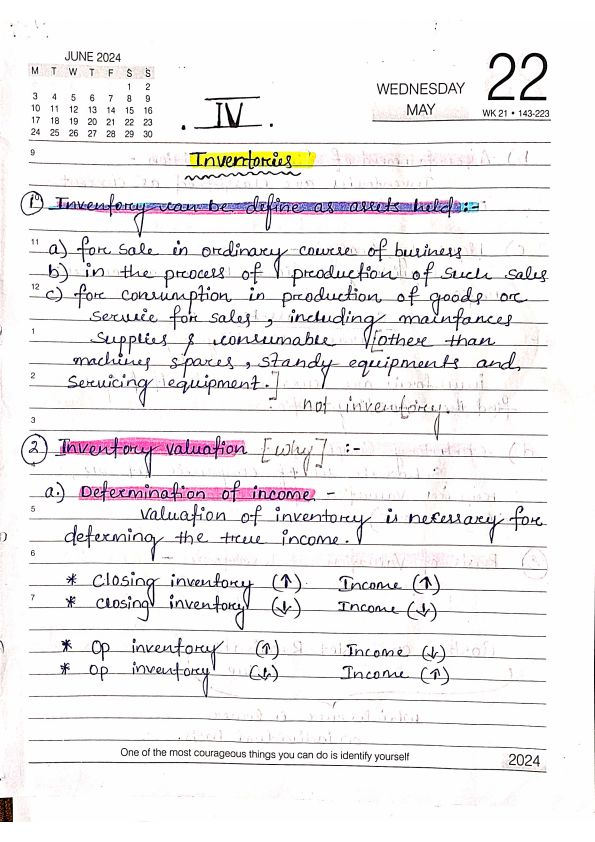 JUNE 2024
M T W T F S S
1 2
3 4 5 6 7 8 9
10 11 12 13 14 15 16
17 18 19 20 21 22 23
24 25 26 27 28 29 30
WEDNESDAY
MAY
22
WK 21 • 143-223
. IV .
9
Inventories
1 Inventory can be define as assets held :-
11 a) for sale in ordinary course of business
b) in the process of production of such sales
12 c) for consumption in production of goods or
service for sales, including mainfances
1 supplies & consumable [other than
machines spares, standy equipments and
2 servicing equipment.]
not inventory.
3
2 Inventory valuation [why] :-
a.) Determination of income -
5 valuation of inventory is necessary for
determing the true income.
6
* Closing inventory (↑) Income (↑)
7 * closing inventory (↓) Income (↓)
* Op inventory (↑) Income (↓)
* Op inventory (↓) Income (↑)
One of the most courageous things you can do is identify yourself
2024